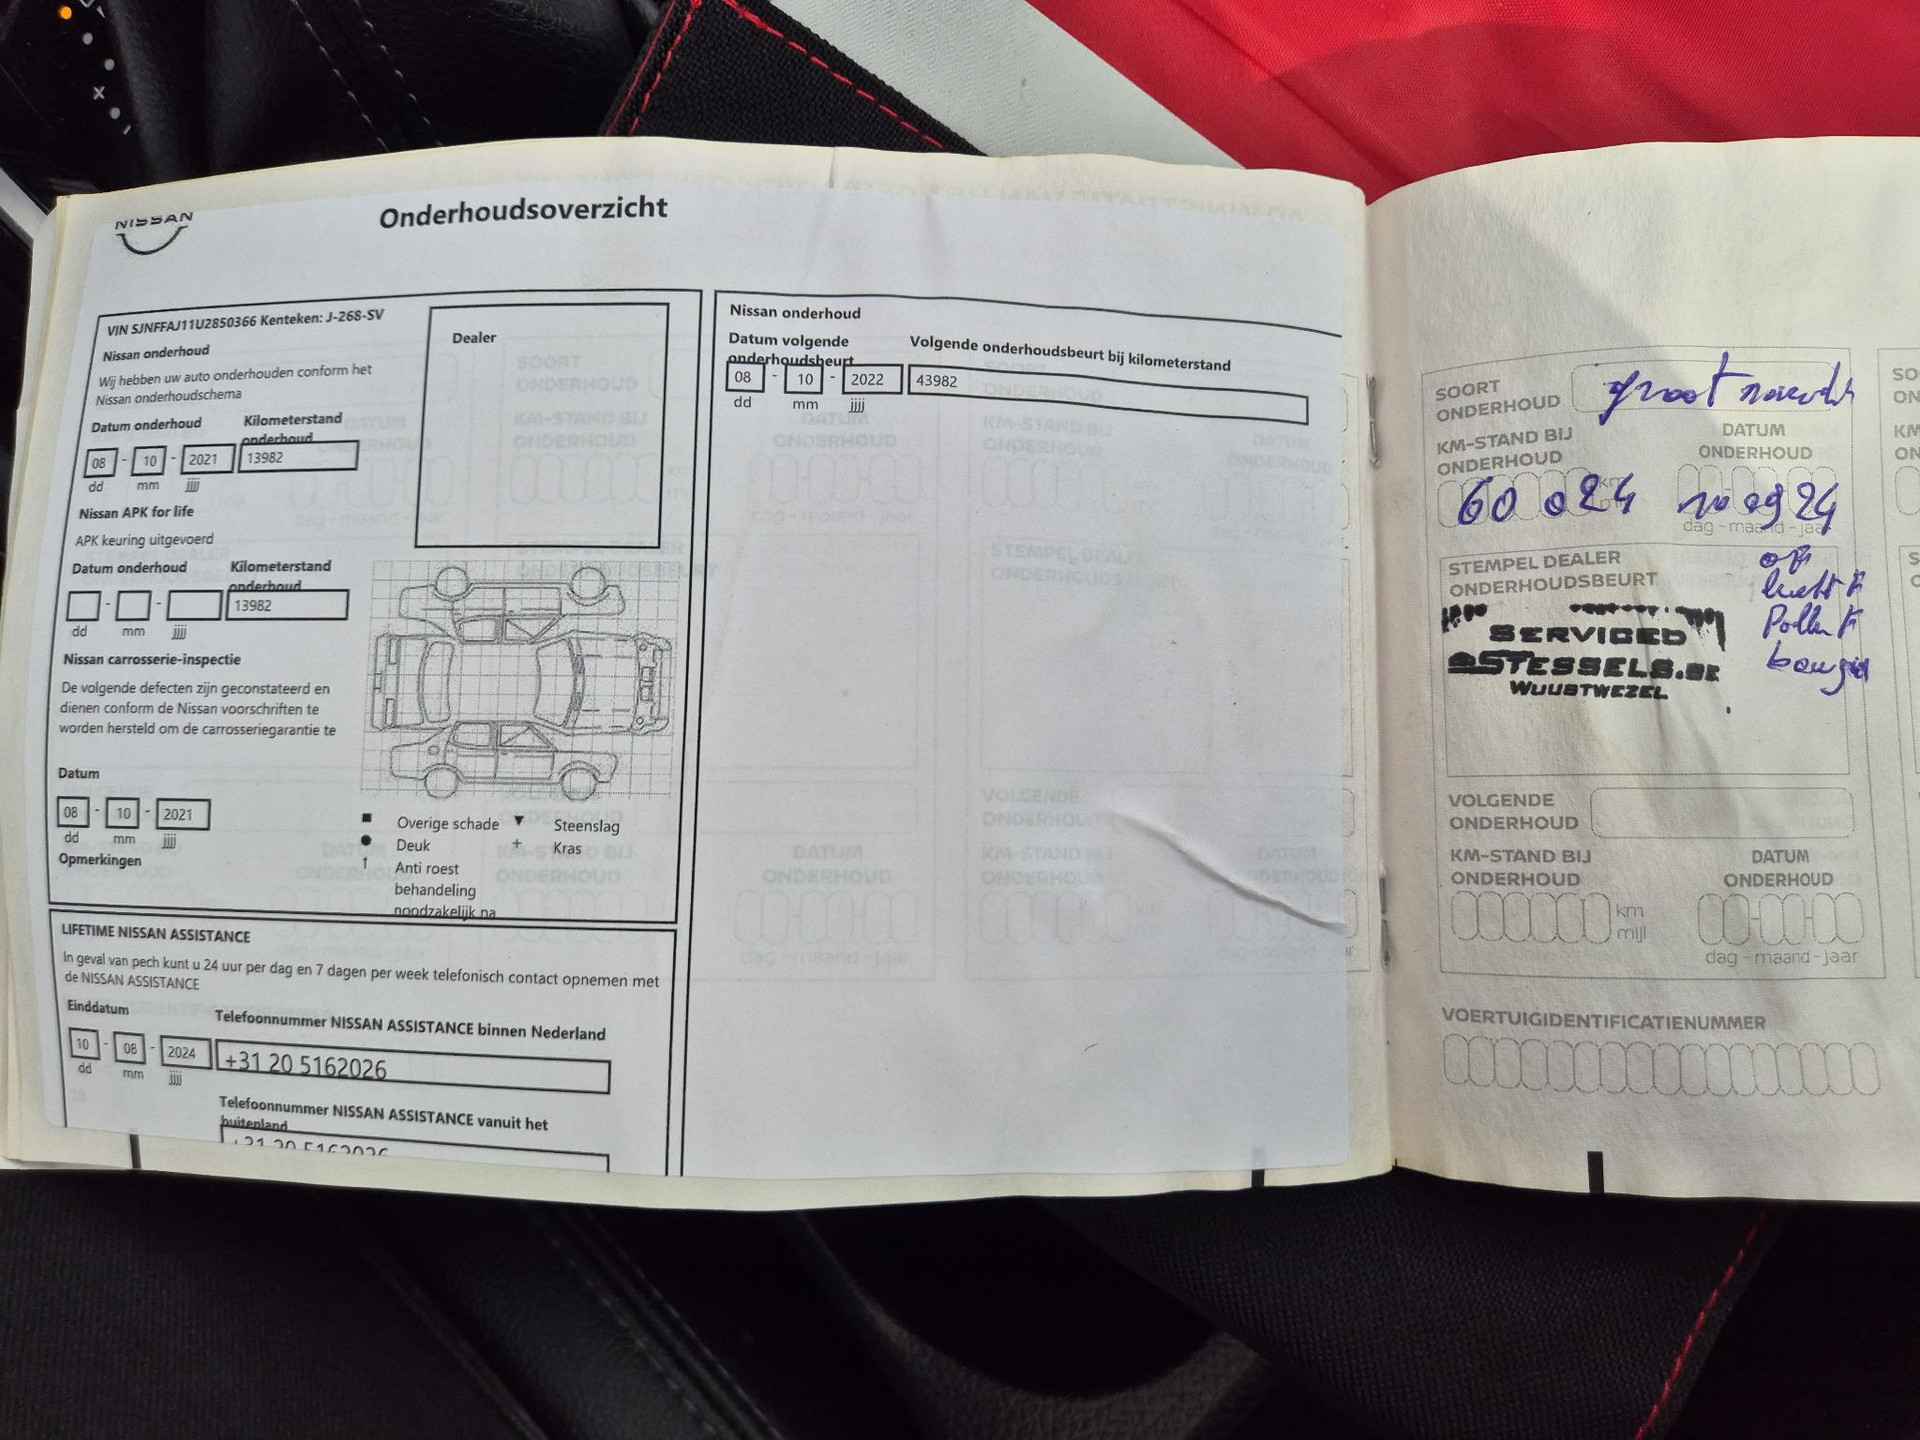 NISSAN
Onderhoudsoverzicht
VIN SJNFFAJ11U2850366 Kenteken: J-268-SV
Nissan onderhoud
Wij hebben uw auto onderhouden conform het
Nissan onderhoudschema
Datum onderhoud
Kilometerstand
onderhoud
08 - 10 - 2021
13982
dd mm jjjj
Nissan APK for life
APK keuring uitgevoerd
Datum onderhoud
Kilometerstand
onderhoud
- -
13982
dd mm jjjj
Nissan carrosserie-inspectie
De volgende defecten zijn geconstateerd en
dienen conform de Nissan voorschriften te
worden hersteld om de carrosseriegarantie te
Datum
08 - 10 - 2021
dd mm jjjj
Opmerkingen
Dealer
Overige schade
Deuk
Anti roest
behandeling
noodzakelijk na
Steenslag
Kras
LIFETIME NISSAN ASSISTANCE
In geval van pech kunt u 24 uur per dag en 7 dagen per week telefonisch contact opnemen met
de NISSAN ASSISTANCE
Einddatum
10 - 08 - 2024
dd mm jjjj
Telefoonnummer NISSAN ASSISTANCE binnen Nederland
+31 20 5162026
Telefoonnummer NISSAN ASSISTANCE vanuit het
buitenland
+31 20 5162026
Nissan onderhoud
Datum volgende
onderhoudsbeurt
08 - 10 - 2022
dd mm jjjj
Volgende onderhoudsbeurt bij kilometerstand
43982
SOORT
ONDERHOUD
groot
KM-STAND BIJ
ONDERHOUD
60 024
km
DATUM
ONDERHOUD
10 09 24
dag - maand - jaar
STEMPEL DEALER
ONDERHOUDSBEURT
SERVICED
STESSELS.BE
WUUSTWEZEL
of
lucht F
Pollen F
bougie
VOLGENDE
ONDERHOUD
KM-STAND BIJ
ONDERHOUD
km
mijl
DATUM
ONDERHOUD
dag - maand - jaar
VOERTUIGIDENTIFICATIENUMMER